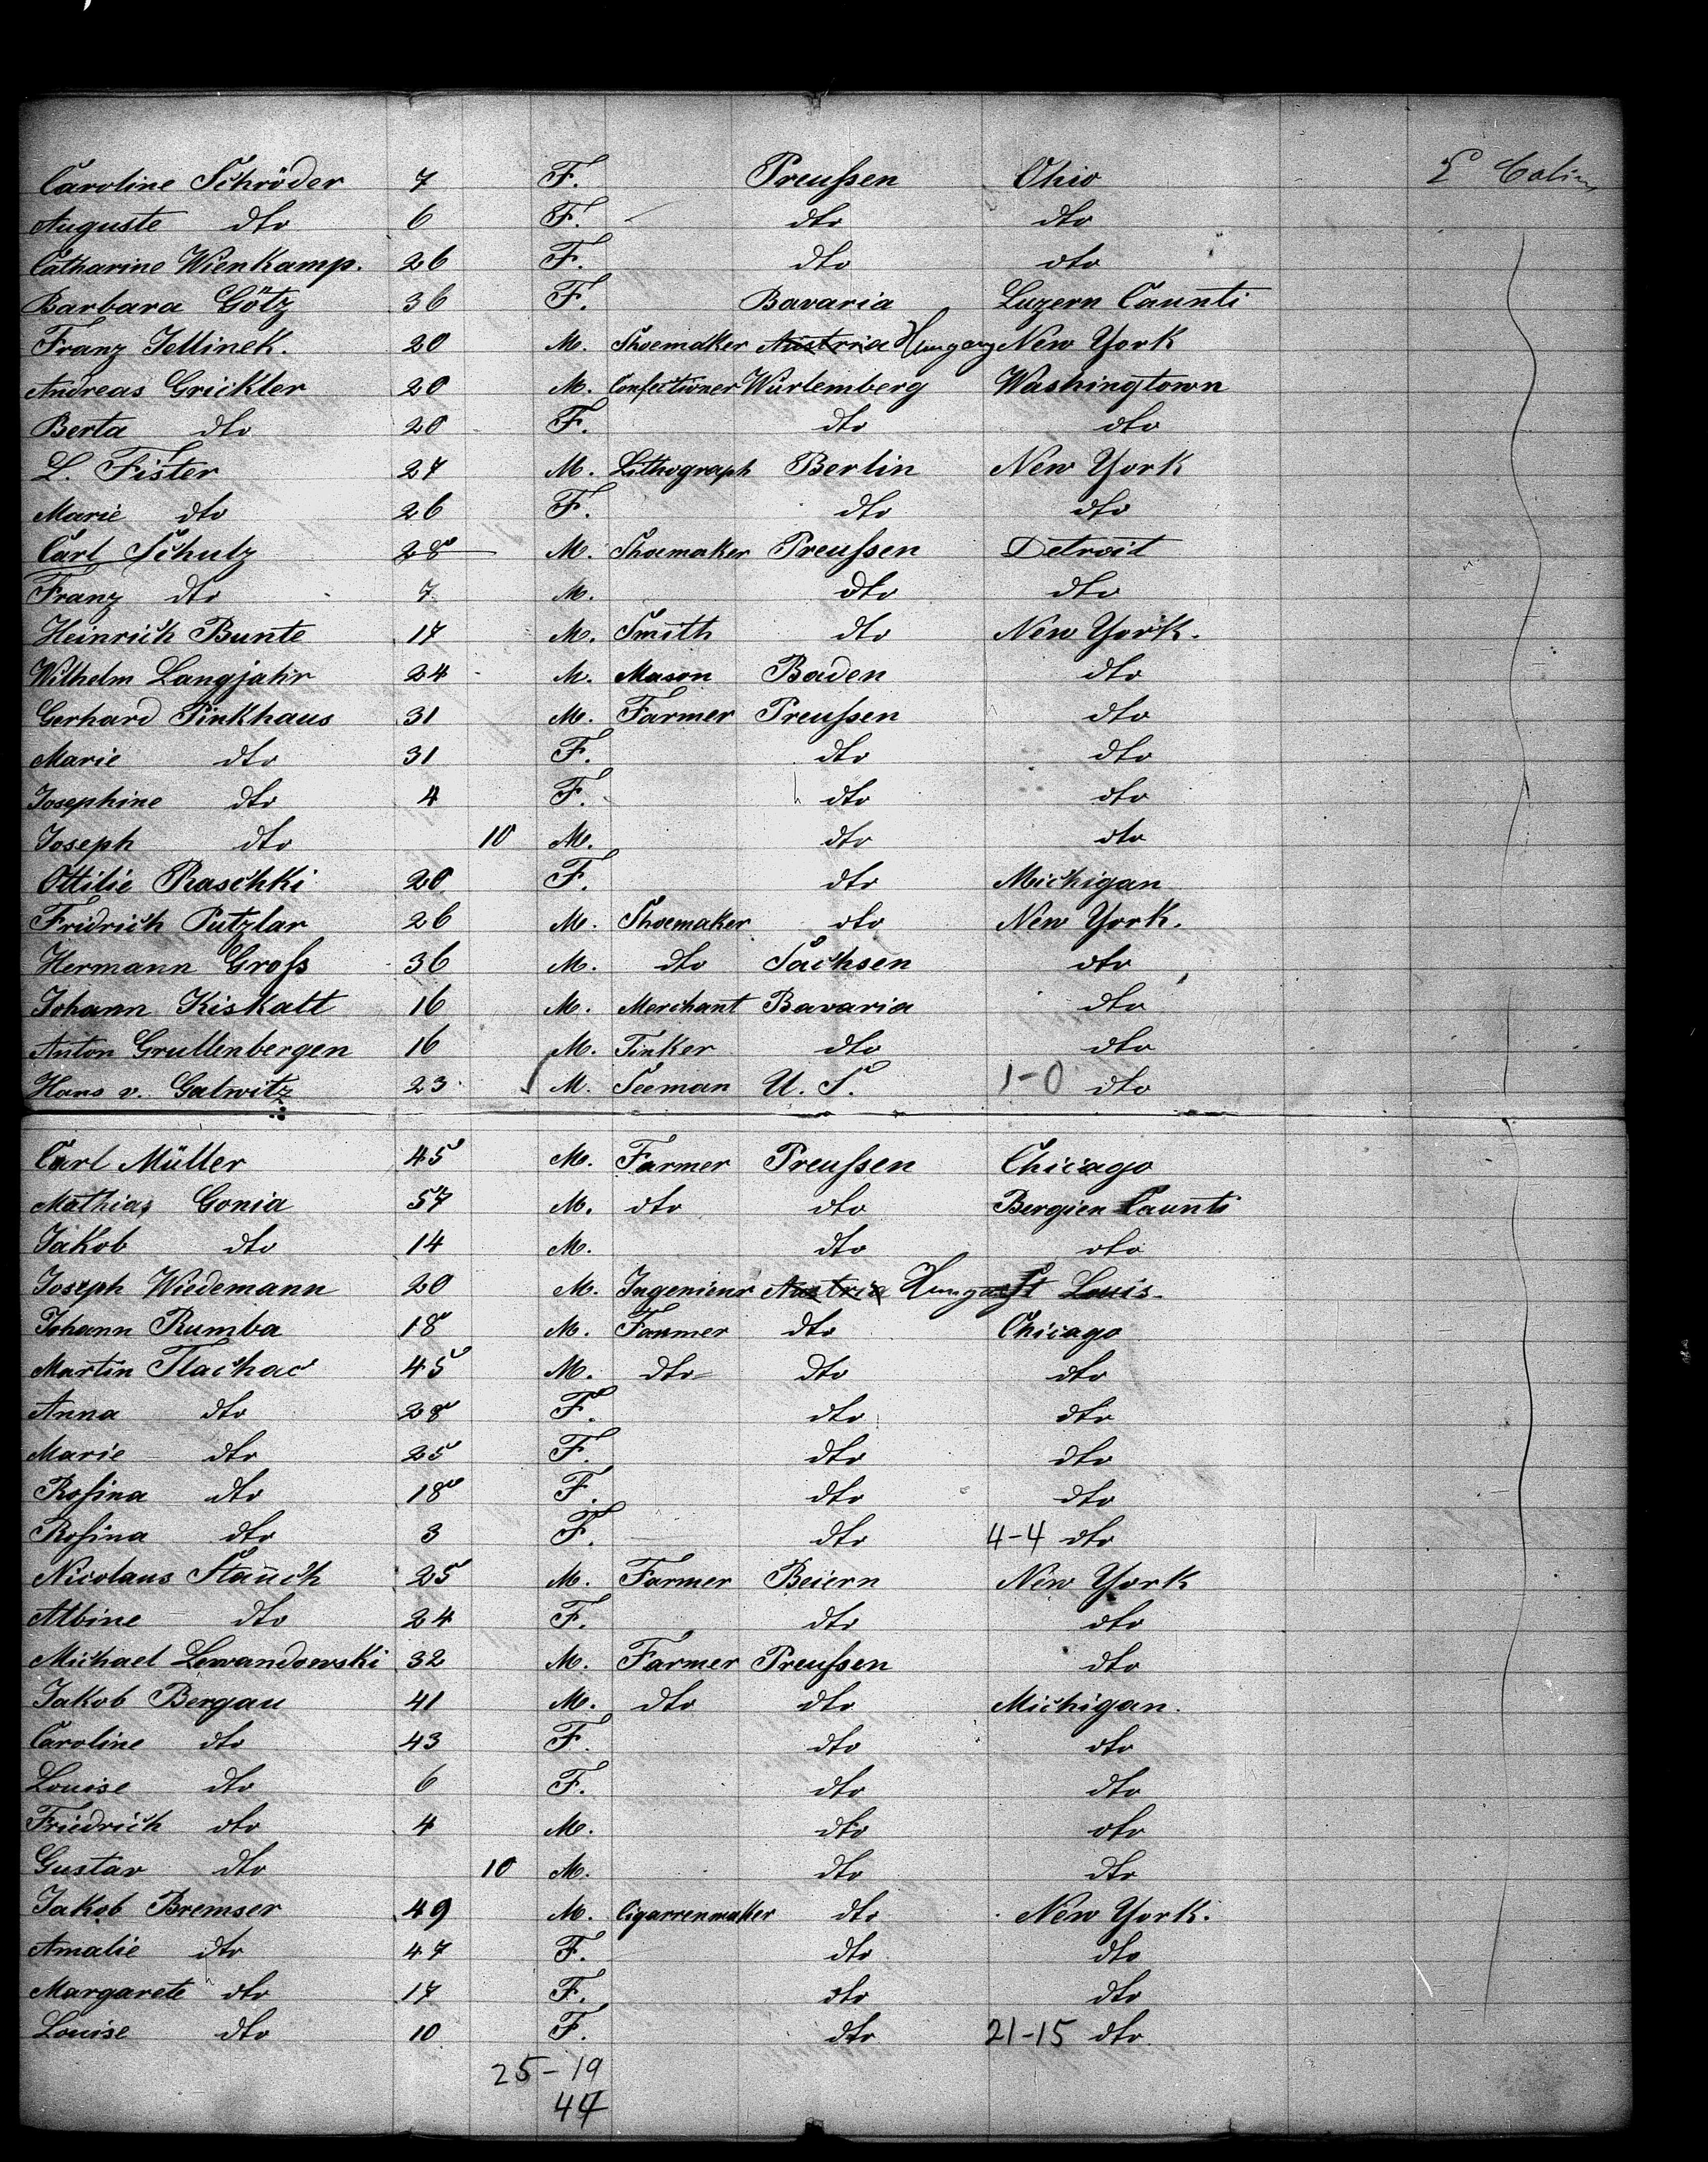 Caroline Schröder 7 F. Preußen Ohio E Colin
Auguste dto 6 F. dto dto
Catharine Wienkamp. 26 F. dto dto
Barbara Götz 36 F. Bavaria Luzern Caunti
Franz Jellinek. 20 M. Shoemaker Austria Hungary New York
Andreas Grickler 20 M. Confectioner Würtemberg Washingtown
Berta dto 20 F. dto dto
L. Fister 27 M. Lithograph Berlin New York
Marie dto 26 F. dto dto
Carl Schulz 28 M. Shoemaker Preußen Detroit
Franz dto 7 M. dto dto
Heinrich Bunte 17 M. Smith dto New York.
Wilhelm Langjahr 24 M. Mason Baden dto
Gerhard Pinkhaus 31 M. Farmer Preußen dto
Marie dto 31 F. dto dto
Josephine dto 4 F. dto dto
Joseph dto 10 M. dto dto
Ottilie Raschki 20 F. dto Michigan
Fridrich Putzlar 26 M. Shoemaker dto New York.
Hermann Groß 36 M. dto Sachsen dto
Johann Kiskalt 16 M. Merchant Bavaria dto
Anton Grullenbergen 16 M. Tinker dto dto
Hans v. Gatwitz 23 M. Seeman U. S. 1-0 dto
Carl Müller 45 M. Farmer Preußen Chicago
Mathias Gonia 57 M. dto dto Bergien Caunti
Jakob dto 14 M. dto dto
Joseph Wiedemann 20 M. Ingenieur Austria Hungary St Louis.
Johann Rumba 18 M. Farmer dto Chicago
Martin Tlachac 45 M. dto dto dto
Anna dto 28 F. dto dto
Marie dto 25 F. dto dto
Roſina dto 18 F. dto dto
Roſina dto 3 F. dto 4-4 dto
Nicolaus Stauch 25 M. Farmer Beiern New York
Albine dto 24 F. dto dto
Michael Lewandowski 32 M. Farmer Preußen dto
Jakob Bergau 41 M. dto dto Michigan.
Caroline dto 43 F. dto dto
Louise dto 6 F. dto dto
Friedrich dto 4 M. dto dto
Gustav dto 10 M. dto dto
Jakob Bremser 49 M. Cigarrenmaker dto New York.
Amalie dto 47 F. dto dto
Margarete dto 17 F. dto dto
Louise dto 10 F. dto 21-15 dto
25-19
44